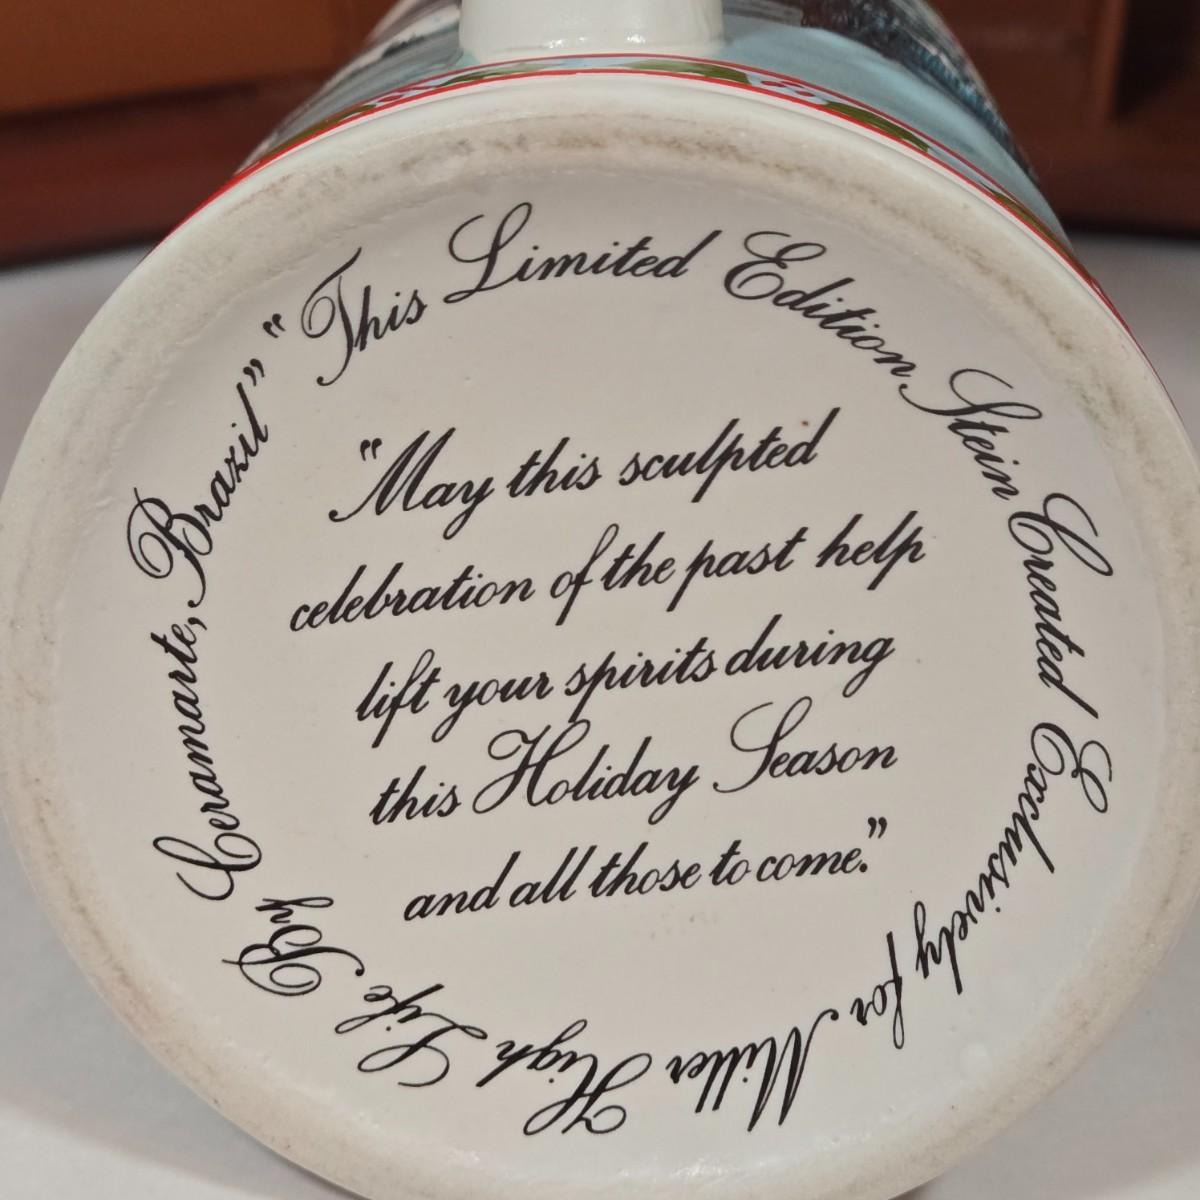 "This Limited Edition Stein Created Exclusively for Miller High Life By Ceramarte, Brazil"
"May this sculpted
celebration of the past help
lift your spirits during
this Holiday Season
and all those to come."